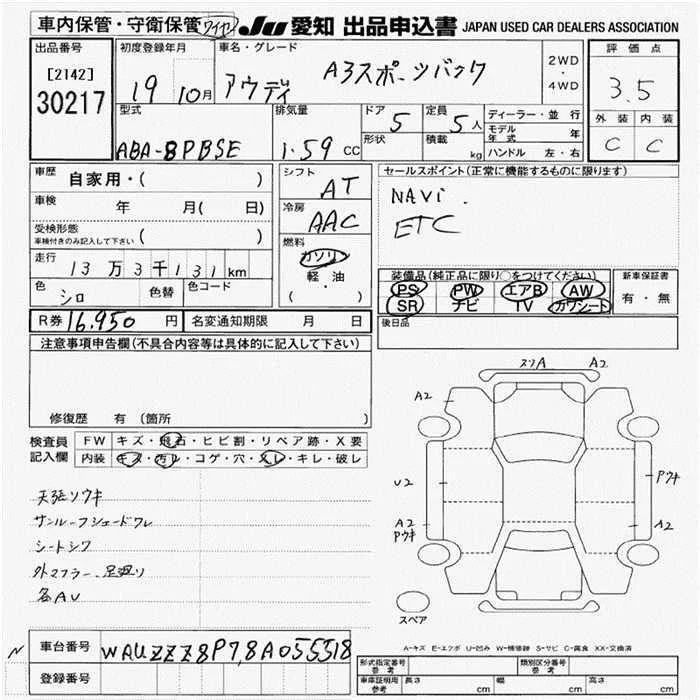 車内保管・守衛保管 ワイヤレ JU 愛知 出品申込書 JAPAN USED CAR DEALERS ASSOCIATION
出品番号 初度登録年月 車名・グレード 2WD・4WD 評価点
[2142] 19 10月 アウディ A3スポーツバック 3.5
30217
型式 排気量 ドア 定員 ディーラー・並行 外装 内装
ABA-8PBSE 1.59 CC 5 5人 モデル年式 年 C C
形状 積載 kg ハンドル 左・右
車歴 自家用・( ) シフト AT セールスポイント(正常に機能するものに限ります)
車検 年 月( 日) 冷房 AAC NAVI.
受検形態 ( ) ETC
車検付きのみ記入して下さい
走行 13万3千131km 燃料 ガソリ 軽・油 ( )
装備品(純正品に限り○をつけてください) 新車保証書
PS PW エアB AW 有・無
SR ナビ TV カワシート
色 シロ 色替 色コード
後日品
R券 16,950 円 名変通知期限 月 日
注意事項申告欄(不具合内容等は具体的に記入して下さい)
修復歴 有(箇所 )
検査員 FW キズ・飛石・ヒビ割・リペア跡・X要
記入欄 内装 キズ・汚レ・コゲ・穴・スレ・キレ・破レ
天張リウキ
サンルーフシェードワレ
シートシワ
外マフラー、足廻リ
各AU
スソA A2
A2
U2 Pウキ
A2 A2
Pウキ
スペア
A-キズ E-エクボ U-凹み W-補修跡 S-サビ C-腐食 XX-交換済
N 車台番号 WAUZZZ8P78A055518
登録番号
形式指定番号 参考 類別区分番号 参考
車庫証明用 参考 長さ cm 幅 cm 高さ cm